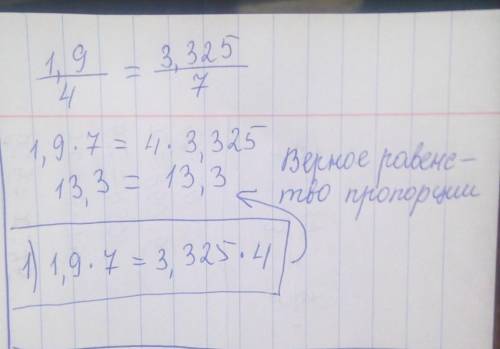 1,9/4 = 3,325/7
1,9 · 7 = 4 · 3,325
13,3 = 13,3
Верное равенс-
тво пропорции
1) 1,9 · 7 = 3,325 · 4